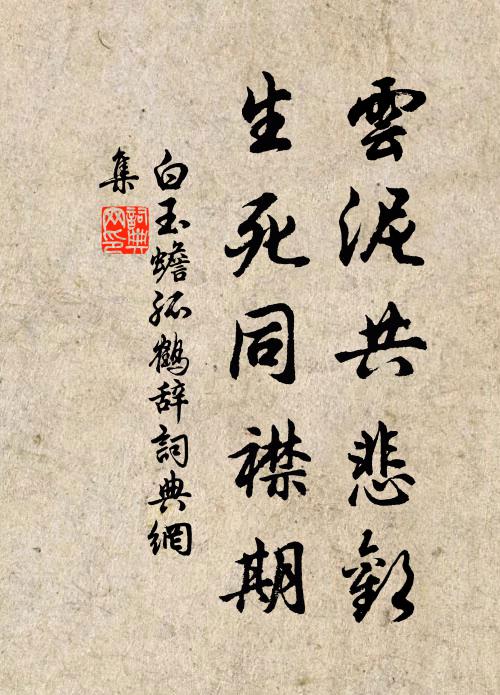 雲泥共悲歡
生死同襟期
白玉蟾孤鶴辞詞典網
集
詞典網印